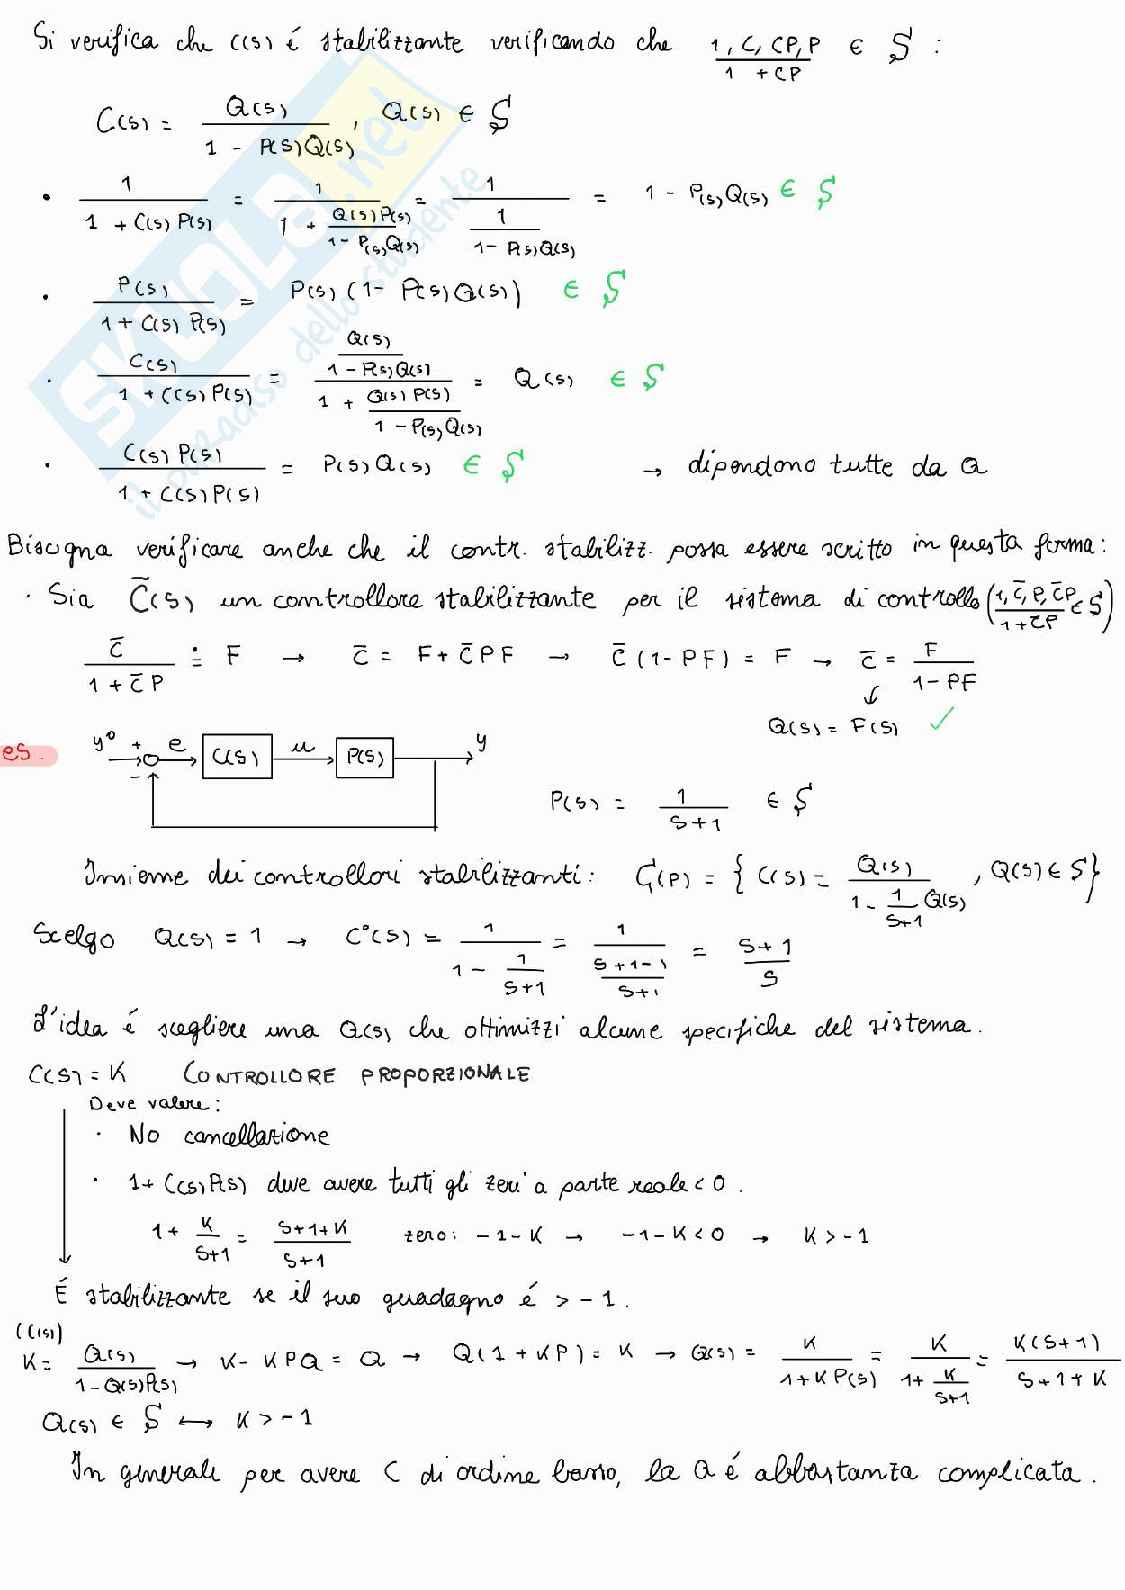 Si verifica che C(s) é stabilizzante verificando che (1, C, CP, P)/(1 + CP) ∈ S :
C(s) = Q(s)/(1 - P(s)Q(s)), Q(s) ∈ S
• 1/(1 + C(s)P(s)) = 1/(1 + Q(s)P(s)/(1 - P(s)Q(s))) = 1/(1/(1 - P(s)Q(s))) = 1 - P(s)Q(s) ∈ S
• P(s)/(1 + C(s)P(s)) = P(s)(1 - P(s)Q(s)) ∈ S
• C(s)/(1 + C(s)P(s)) = (Q(s)/(1 - P(s)Q(s)))/(1 + Q(s)P(s)/(1 - P(s)Q(s))) = Q(s) ∈ S
• C(s)P(s)/(1 + C(s)P(s)) = P(s)Q(s) ∈ S → dipendono tutte da Q
Bisogna verificare anche che il contr. stabilizz. possa essere scritto in questa forma:
• Sia C̄(s) un controllore stabilizzante per il sistema di controllo ((1, C̄, P, C̄P)/(1 + C̄P) ∈ S)
C̄/(1 + C̄P) ≐ F → C̄ = F + C̄PF → C̄(1 - PF) = F → C̄ = F/(1 - PF)
↓
Q(s) = F(s) ✓
es.
y° + - e C(s) u P(s) y
P(s) = 1/(s+1) ∈ S
Insieme dei controllori stabilizzanti: C(P) = { C(s) = Q(s)/(1 - 1/(s+1) Q(s)), Q(s) ∈ S }
Scelgo Q(s) = 1 → C°(s) = 1/(1 - 1/(s+1)) = 1/((s+1-1)/(s+1)) = (s+1)/s
L'idea é scegliere una Q(s) che ottimizzi alcune specifiche del sistema.
C(s) = K CONTROLLORE PROPORZIONALE
Deve valere:
• No cancellazione
• 1 + C(s)P(s) deve avere tutti gli zeri a parte reale < 0.
1 + K/(s+1) = (s+1+K)/(s+1) zero: -1-K → -1-K < 0 → K > -1
É stabilizzante se il suo guadagno é > -1.
(C(s))
K = Q(s)/(1 - Q(s)P(s)) → K - KPQ = Q → Q(1 + KP) = K → Q(s) = K/(1 + KP(s)) = K/(1 + K/(s+1)) = K(s+1)/(s+1+K)
Q(s) ∈ S ⟷ K > -1
In generale per avere C di ordine basso, la Q é abbastanza complicata.
SKUOLA.net
il paradiso dello studente